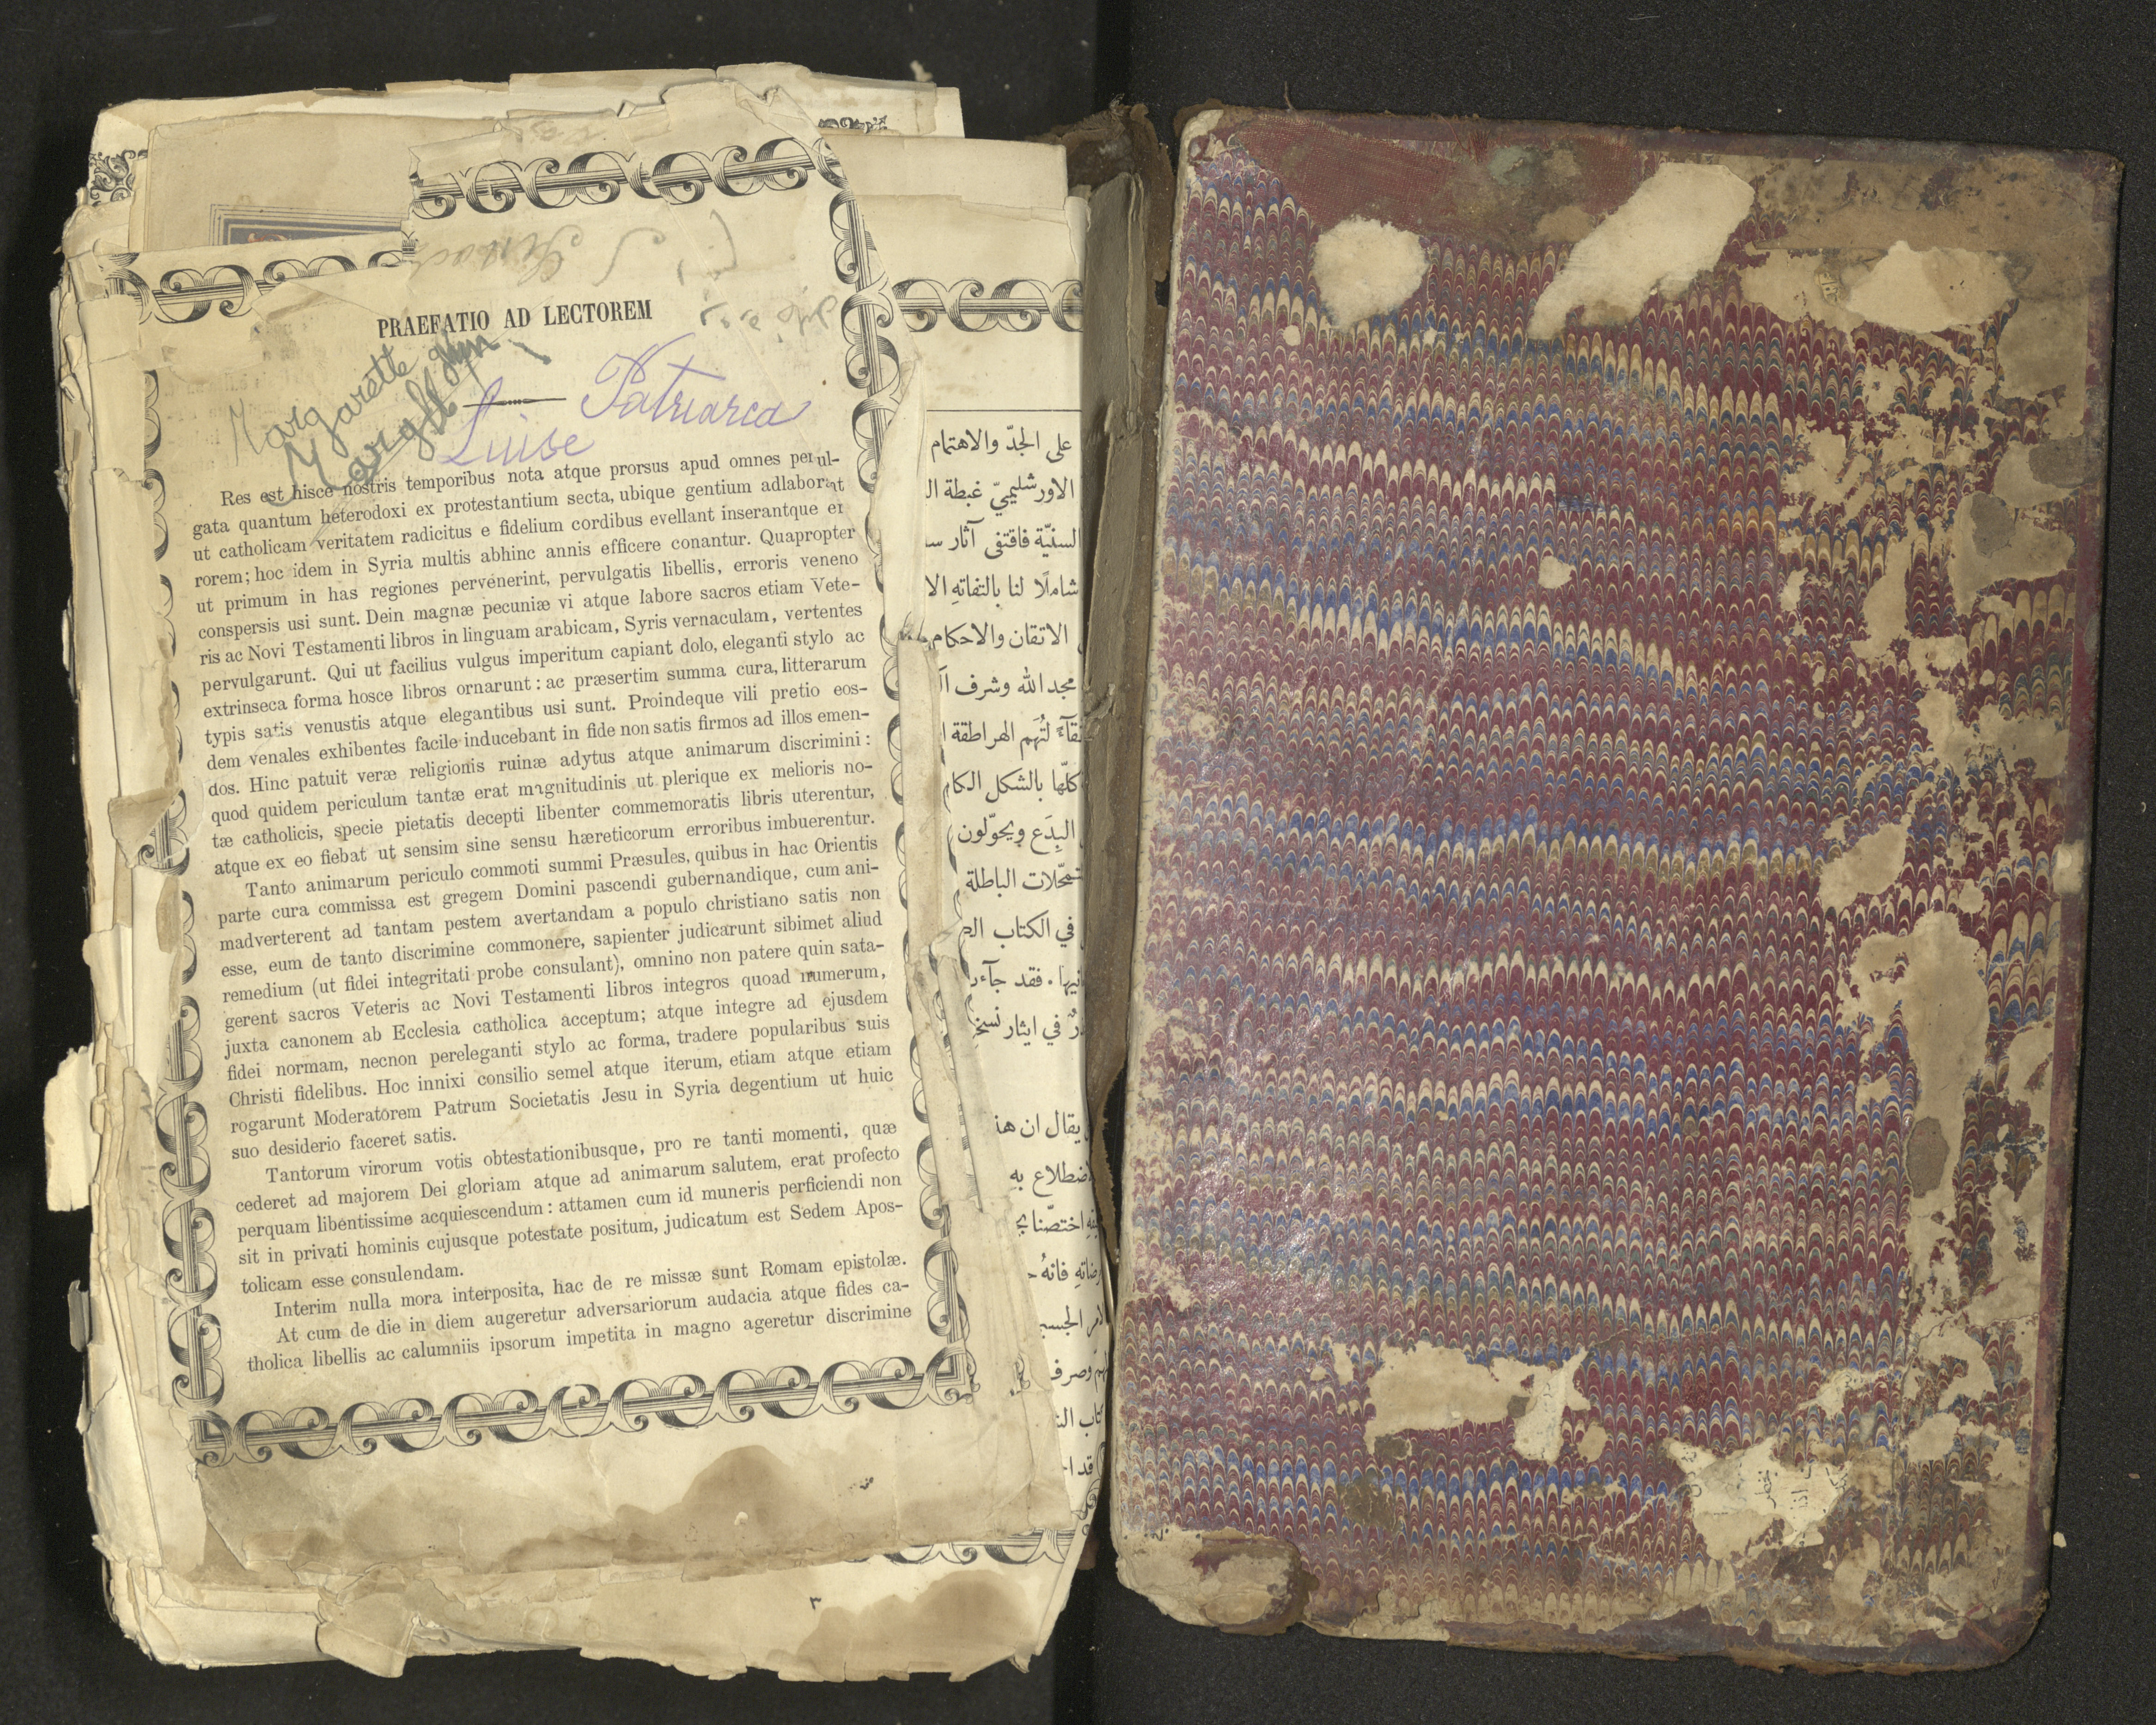 PRAEFATIO AD LECTOREM
Margarette
Luise Patriarca
Res est hisce nostris temporibus nota atque prorsus apud omnes perul-
gata quantum heterodoxi ex protestantium secta, ubique gentium adlaborat
ut catholicam veritatem radicitus e fidelium cordibus evellant inserantque er
rorem; hoc idem in Syria multis abhinc annis efficere conantur. Quapropter
ut primum in has regiones pervenerint, pervulgatis libellis, erroris veneno
conspersis usi sunt. Dein magnæ pecuniæ vi atque labore sacros etiam Vete-
ris ac Novi Testamenti libros in linguam arabicam, Syris vernaculam, vertentes
pervulgarunt. Qui ut facilius vulgus imperitum capiant dolo, eleganti stylo ac
extrinseca forma hosce libros ornarunt: ac præsertim summa cura, litterarum
typis satis venustis atque elegantibus usi sunt. Proindeque vili pretio eos-
dem venales exhibentes facile inducebant in fide non satis firmos ad illos emen-
dos. Hinc patuit veræ religionis ruinæ adytus atque animarum discrimini:
quod quidem periculum tantæ erat magnitudinis ut plerique ex melioris no-
tæ catholicis, specie pietatis decepti libenter commemoratis libris uterentur,
atque ex eo fiebat ut sensim sine sensu hæreticorum erroribus imbuerentur.
Tanto animarum periculo commoti summi Præsules, quibus in hac Orientis
parte cura commissa est gregem Domini pascendi gubernandique, cum ani-
madverterent ad tantam pestem avertandam a populo christiano satis non
esse, eum de tanto discrimine commonere, sapienter judicarunt sibimet aliud
remedium (ut fidei integritati probe consulant), omnino non patere quin sata-
gerent sacros Veteris ac Novi Testamenti libros integros quoad numerum,
juxta canonem ab Ecclesia catholica acceptum; atque integre ad ejusdem
fidei normam, necnon pereleganti stylo ac forma, tradere popularibus suis
Christi fidelibus. Hoc innixi consilio semel atque iterum, etiam atque etiam
rogarunt Moderatorem Patrum Societatis Jesu in Syria degentium ut huic
suo desiderio faceret satis.
Tantorum virorum votis obtestationibusque, pro re tanti momenti, quæ
cederet ad majorem Dei gloriam atque ad animarum salutem, erat profecto
perquam libentissime acquiescendum: attamen cum id muneris perficiendi non
sit in privati hominis cujusque potestate positum, judicatum est Sedem Apos-
tolicam esse consulendam.
Interim nulla mora interposita, hac de re missæ sunt Romam epistolæ.
At cum de die in diem augeretur adversariorum audacia atque fides ca-
tholica libellis ac calumniis ipsorum impetita in magno ageretur discrimine
على الجدّ والاهتمام
الاورشليميّ غبطة ال
السنيّة فاقتفى آثار
شاملًا لنا بالتفاتهِ الا
الاتقان والاحكام
مجد الله وشرف
لتُهَم الهراطقة
كلّها بالشكل الكا
البِدَع ويحوّلون
الباطلة
في الكتاب
فقد جآء
في ايثار نسخ
يقال ان هذ
ضطلاع به
اختصّنا
فانهُ
وصرف
٣